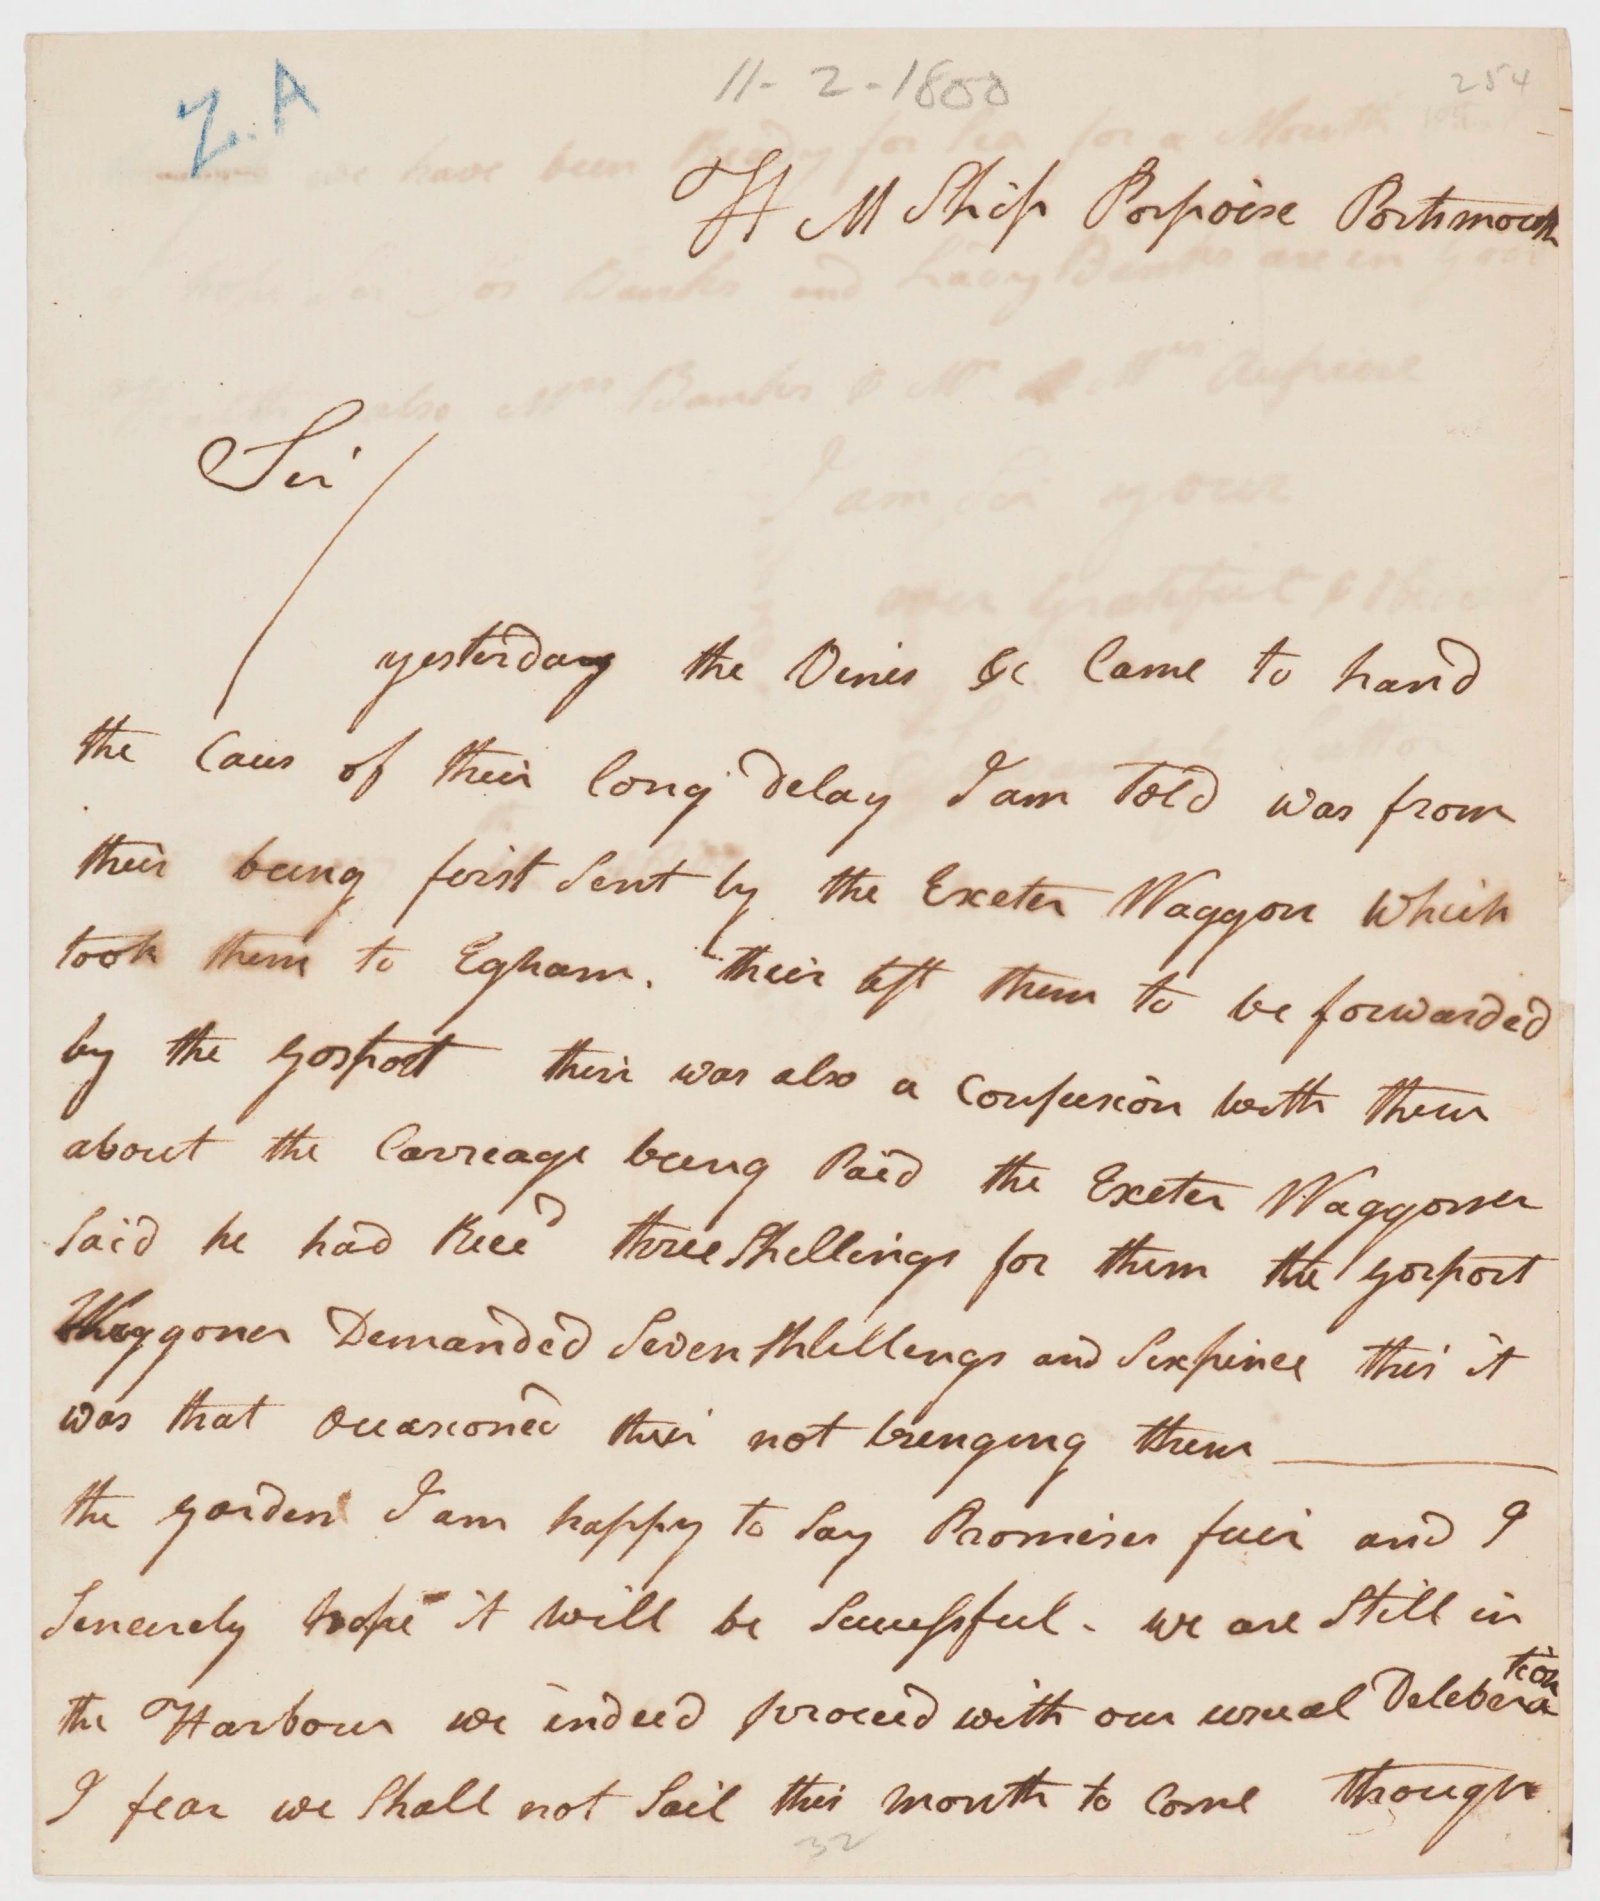 Z.A
11-2-1800
254
H M Ship Porpoise Portsmouth
Sir
yesterday the Vines &c Came to hand
the Caus of their long delay I am told was from
their being first sent by the Exeter Waggon which
took them to Egham. their left them to be forwarded
by the gosport their was also a Confusion with them
about the Carreage being Paid the Exeter Waggoner
said he had Recd three Shellings for them the gosport
Waggoner Demanded Seven Shellengs and Sexpince this it
was that occasioned their not brenging them
the garden I am happy to say Promises fair and I
Sencerely hope it will be Successful. we are Still in
the Harbour we indeed proceed with our usual Deleberation
I fear we Shall not Sail this month to Come though
32
we have been Ready for Sea for a Month
hope Sir Jos Banks and Lady Banks are in good
also Mrs Banks & Mr & Mrs
I am Sir your
ever grateful &